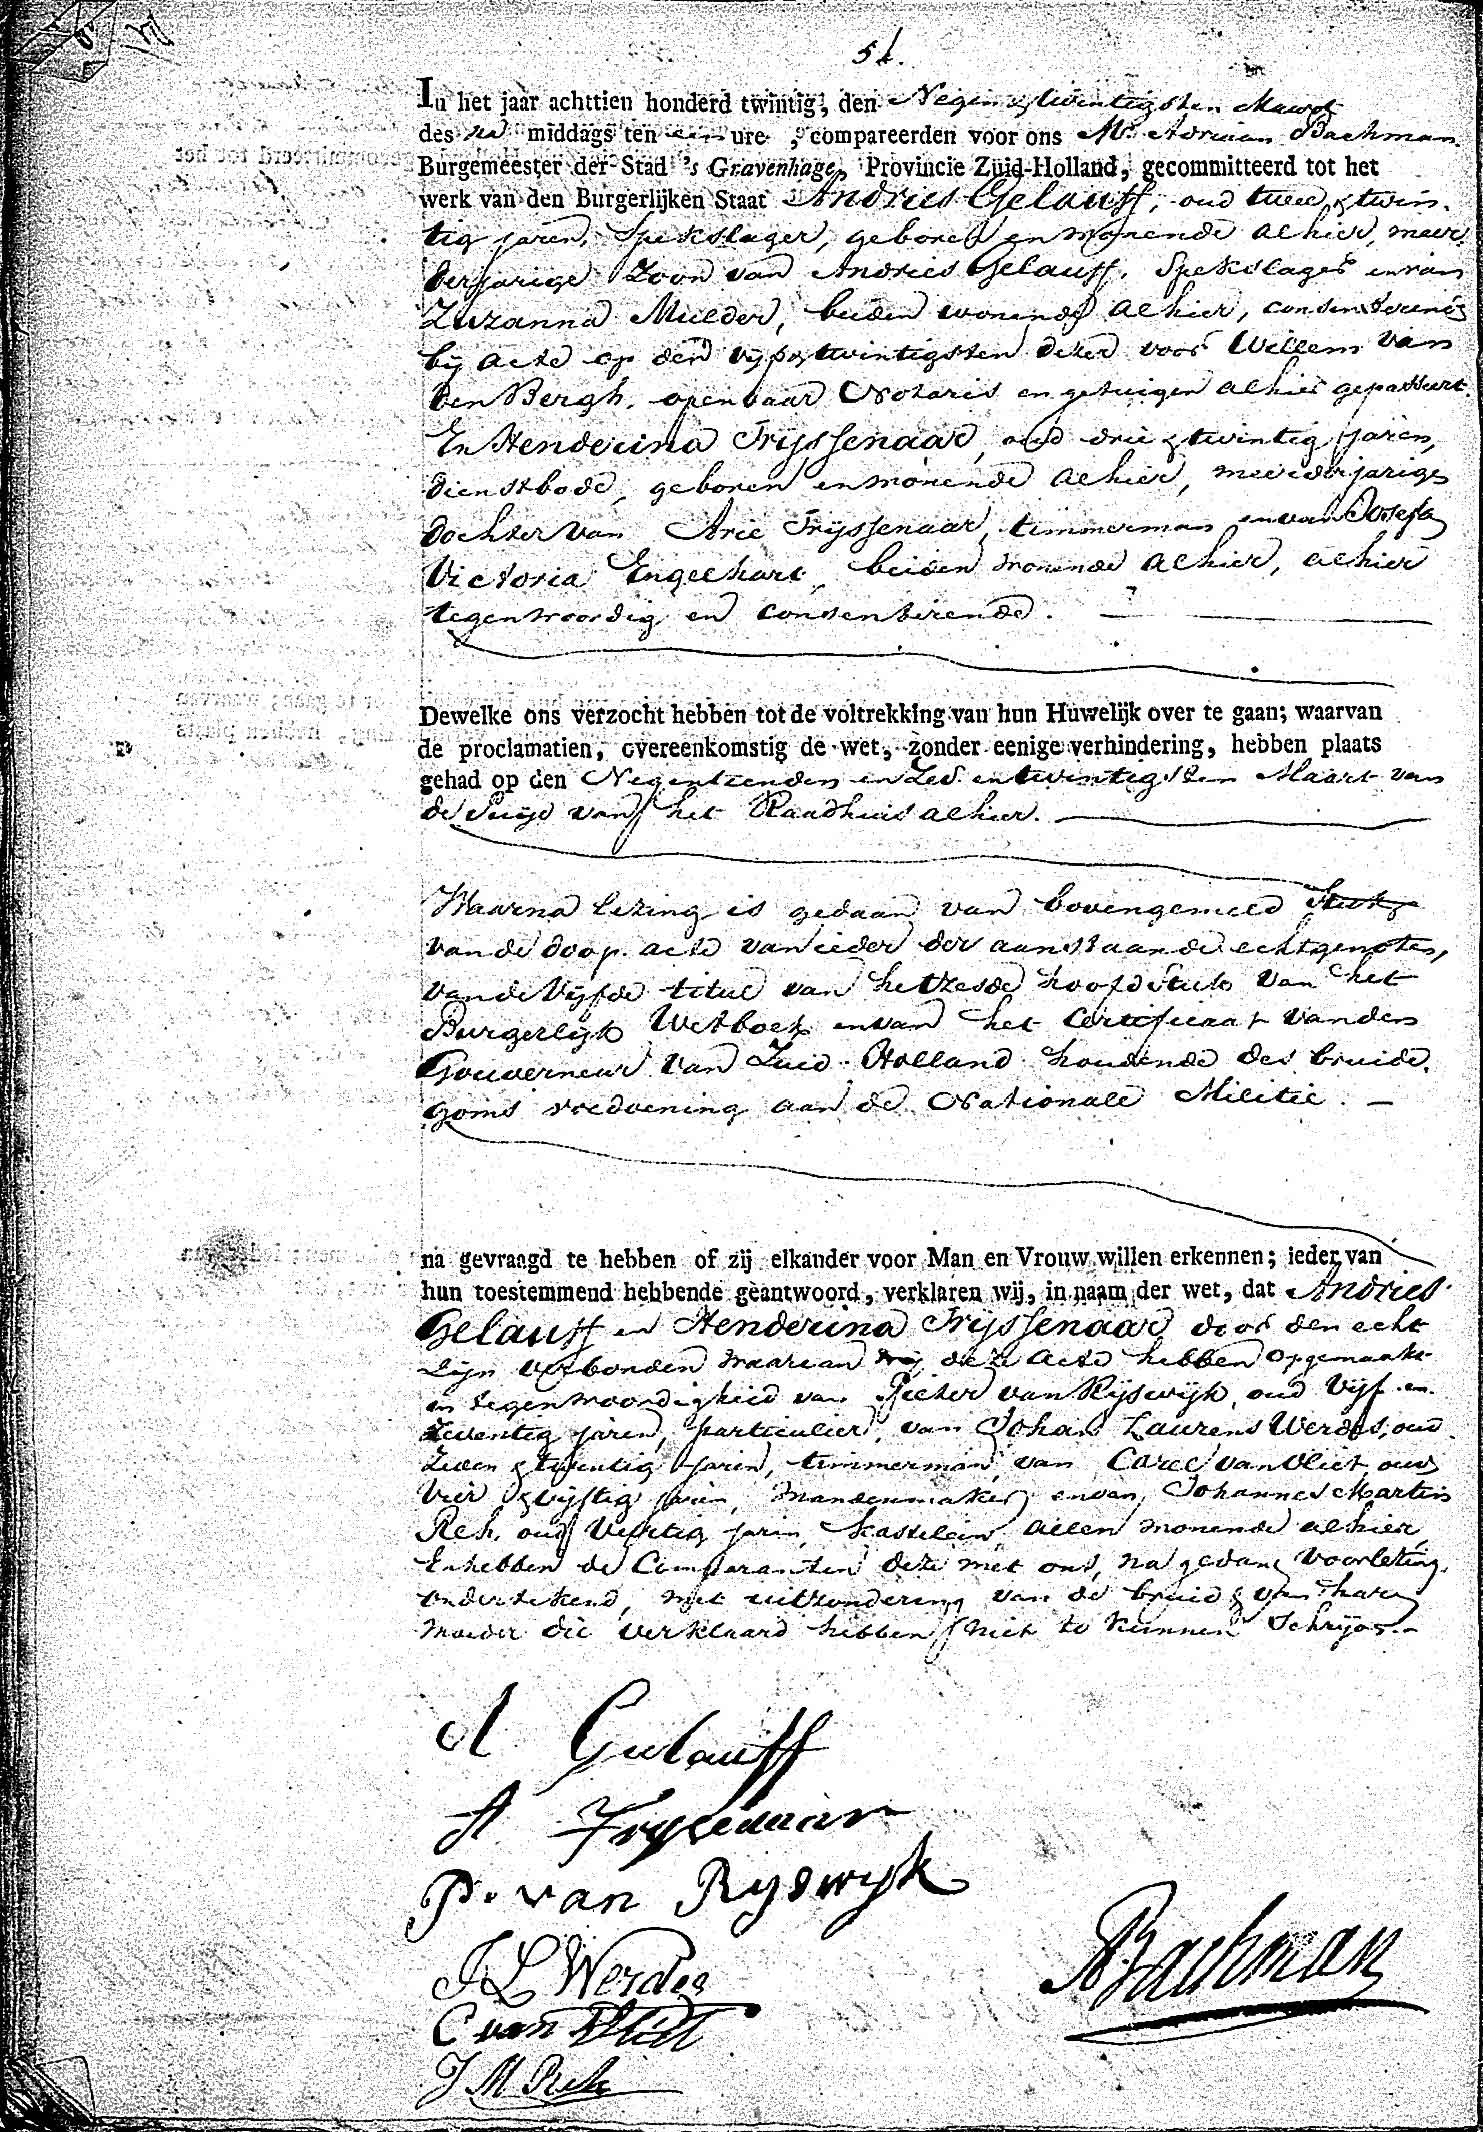 In het jaar achttien honderd twintig, den Negen & twintigsten Maart
des na middags ten een ure, compareerden voor ons Mr. Adriaan Bachman
Burgemeester der Stad 's Gravenhage, Provincie Zuid-Holland, gecommitteerd tot het
werk van den Burgerlijken Staat Andries Gelauff, oud twee & twin-
tig jaren, Spekslager, geboren en wonende alhier, meer
derjarige Zoon van Andries Gelauff, Spekslager en van
Zuzanna Mulder, beiden wonende alhier, consenteerende
bij acte op den vijf & twintigsten dezer voor Willem van
den Bergh, openbaar Notaris en getuigen alhier gepasseert.
En Henderina Frijssenaar, oud drie & twintig jaren,
dienstbode, geboren en wonende alhier, meerderjarige
dochter van Arie Frijssenaar, timmerman en van Josefa
Victoria Engelhart, beiden wonende alhier, alhier
tegenwoordig en consenterende.
Dewelke ons verzocht hebben tot de voltrekking van hun Huwelijk over te gaan; waarvan
de proclamatien, overeenkomstig de wet, zonder eenige verhindering, hebben plaats
gehad op den Negentienden en Zes en twintigsten Maart van
de Puije van het Raadhuis alhier.
Waarna lezing is gedaan van bovengemeld
van de doop acte van ieder der aanstaande echtgenoten,
van de Vijfde titul van het zesde hoofdstuk van het
Burgerlijk Wetboek en van het Certificaat van den
Gouverneur van Zuid-Holland houdende des bruide-
goms voldoening aan de Nationale Militie.
na gevraagd te hebben of zij elkander voor Man en Vrouw willen erkennen; ieder van
hun toestemmend hebbende geantwoord, verklaren wij, in naam der wet, dat Andries
Gelauff en Henderina Frijssenaar door den echt
zijn verbonden waarvan wij deze acte hebben opgemaakt
in tegenwoordigheid van Pieter van Rijswijk, oud Vijf en
Zeventig jaren, particulier, van Johan Laurens Werdes, oud
Zeven & twintig jaren, timmerman, van Carel van Vliet, oud
Vier & vijftig jaren, mandenmaker, en van Johannes Martin
Reh, oud Veertig jaren, kastelein, allen wonende alhier
En hebben de Comparanten deze met ons, na gedane Voorlezing,
ondertekend, met uitzondering van de bruid & van hare
moeder die verklaard hebben niet te kunnen Schrijven
A Gelauff
A Frysenaar
P. van Ryswyk
J L Werdes
C van Vliet
ABachman
J M Reh